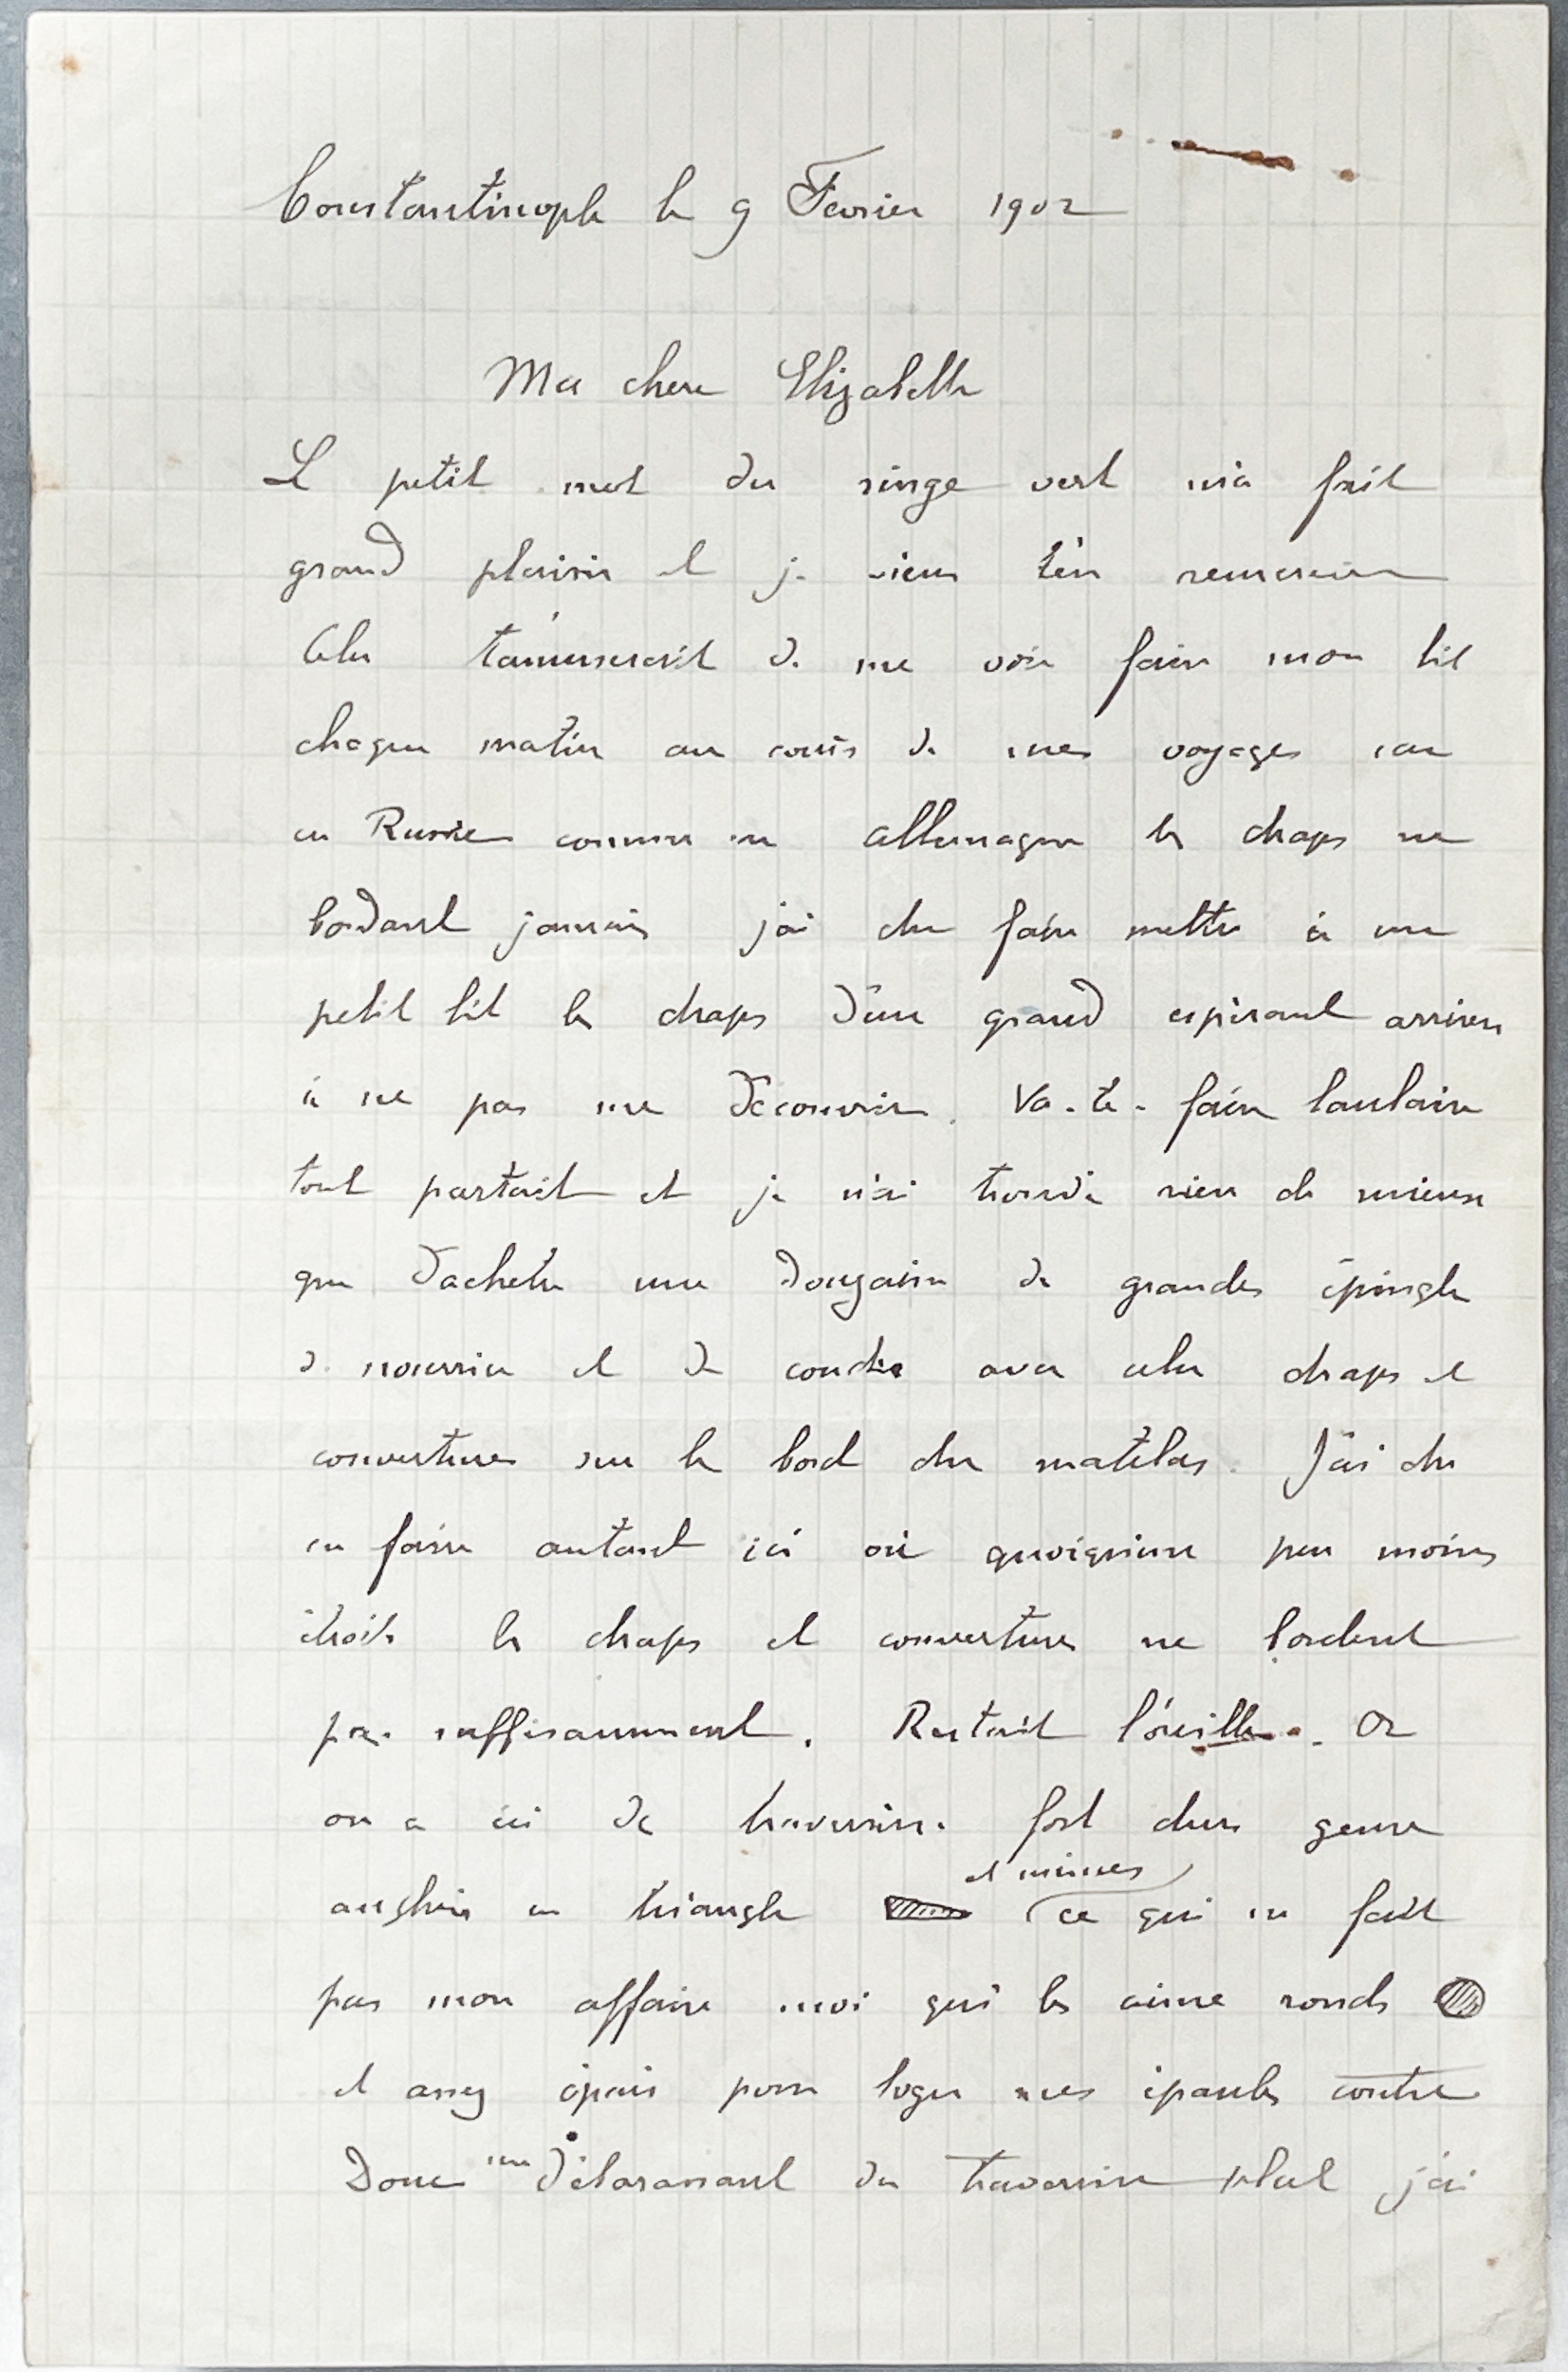 Constantinople le 9 Fevrier 1902
Ma chere Elizabeth
Le petit mot du singe vert m'a fait
grand plaisir et je viens t'en remercier
Cela t'amuserait de me voir faire mon lit
chaque matin au cours de mes voyages car
en Russie comme en Allemagne les draps ne
bordant jamais j'ai du faire mettre à un
petit lit les draps d'un grand espérant arriver
à ne pas me découvrir. Va-te-faire lanlaire
tout partait et je n'ai trouvé rien de mieux
que d'acheter une douzaine de grandes épingles
de nourrice et de coudre avec cela draps et
couvertures sur le bord du matelas. J'ai du
en faire autant ici où quoiqu'un peu moins
étroits les draps et couvertures ne bordent
pas suffisamment. Restait l'oreiller. Or
on a ici de traversins fort durs genre
anglais en triangle et minces ce qui ne fait
pas mon affaire moi qui les aime ronds
et assez épais pour loger mes épaules contre
Donc me débarassant du traversin plat j'ai